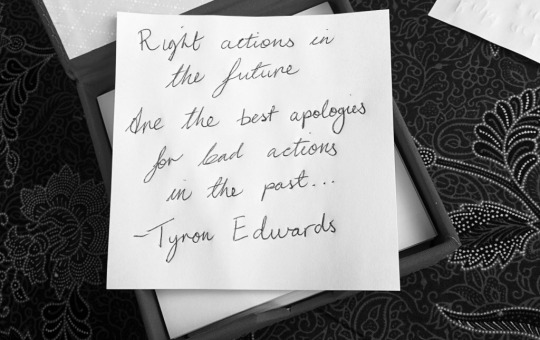 Right actions in
the future
Are the best apologies
for bad actions
in the past...
-Tyron Edwards